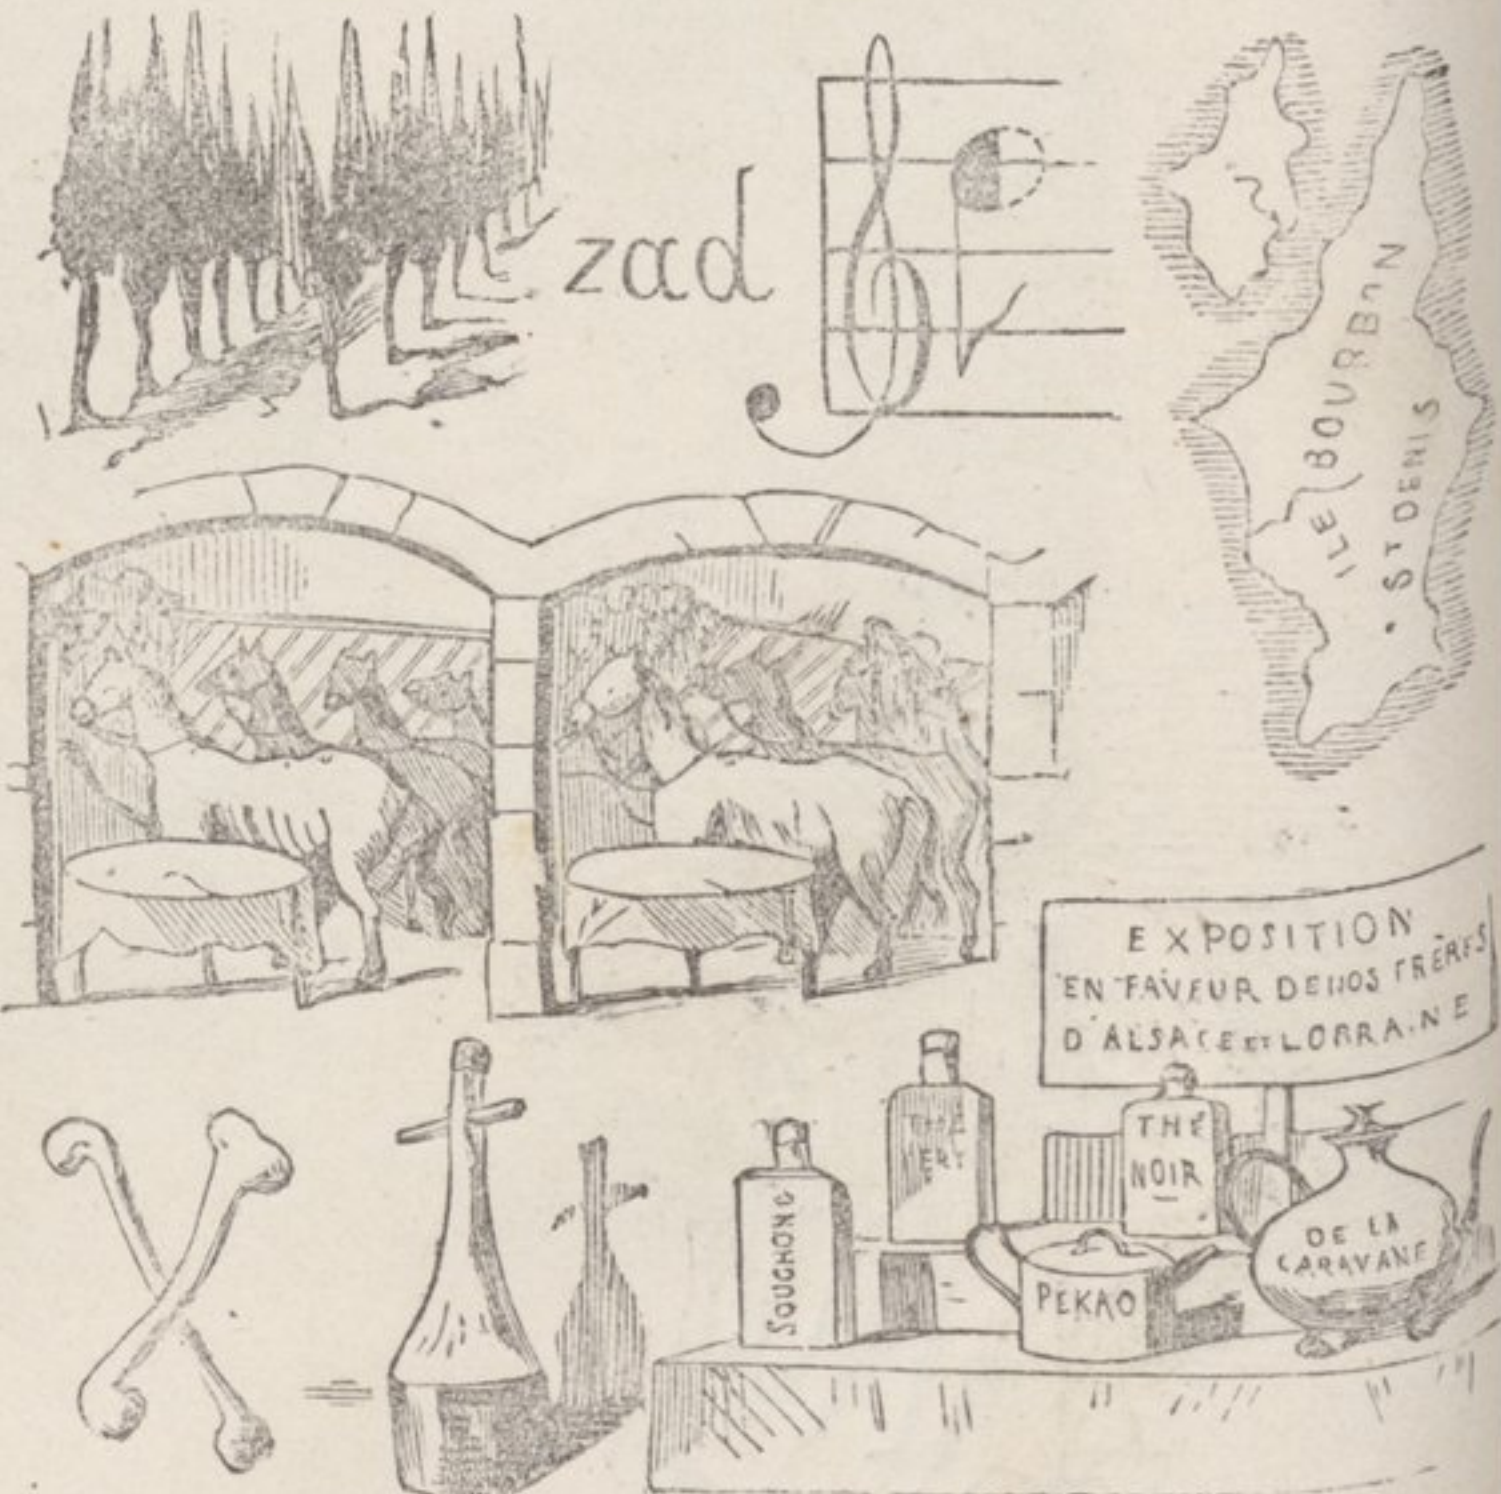 zad
ILE BOURBON
ST DENIS
EXPOSITION
EN FAVEUR DE NOS FRÈRES
D'ALSACE ET LORRAINE
THÉ
VERT
THÉ
NOIR
SOUCHONG
PEKAO
DE LA
CARAVANE